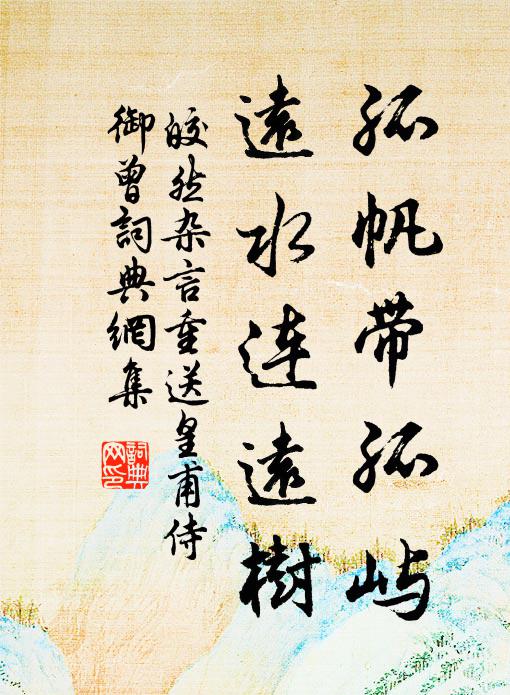 孤帆带孤屿
遠水连遠樹
皎然杂言重送皇甫侍
御曾詞典網集
詞典
网印